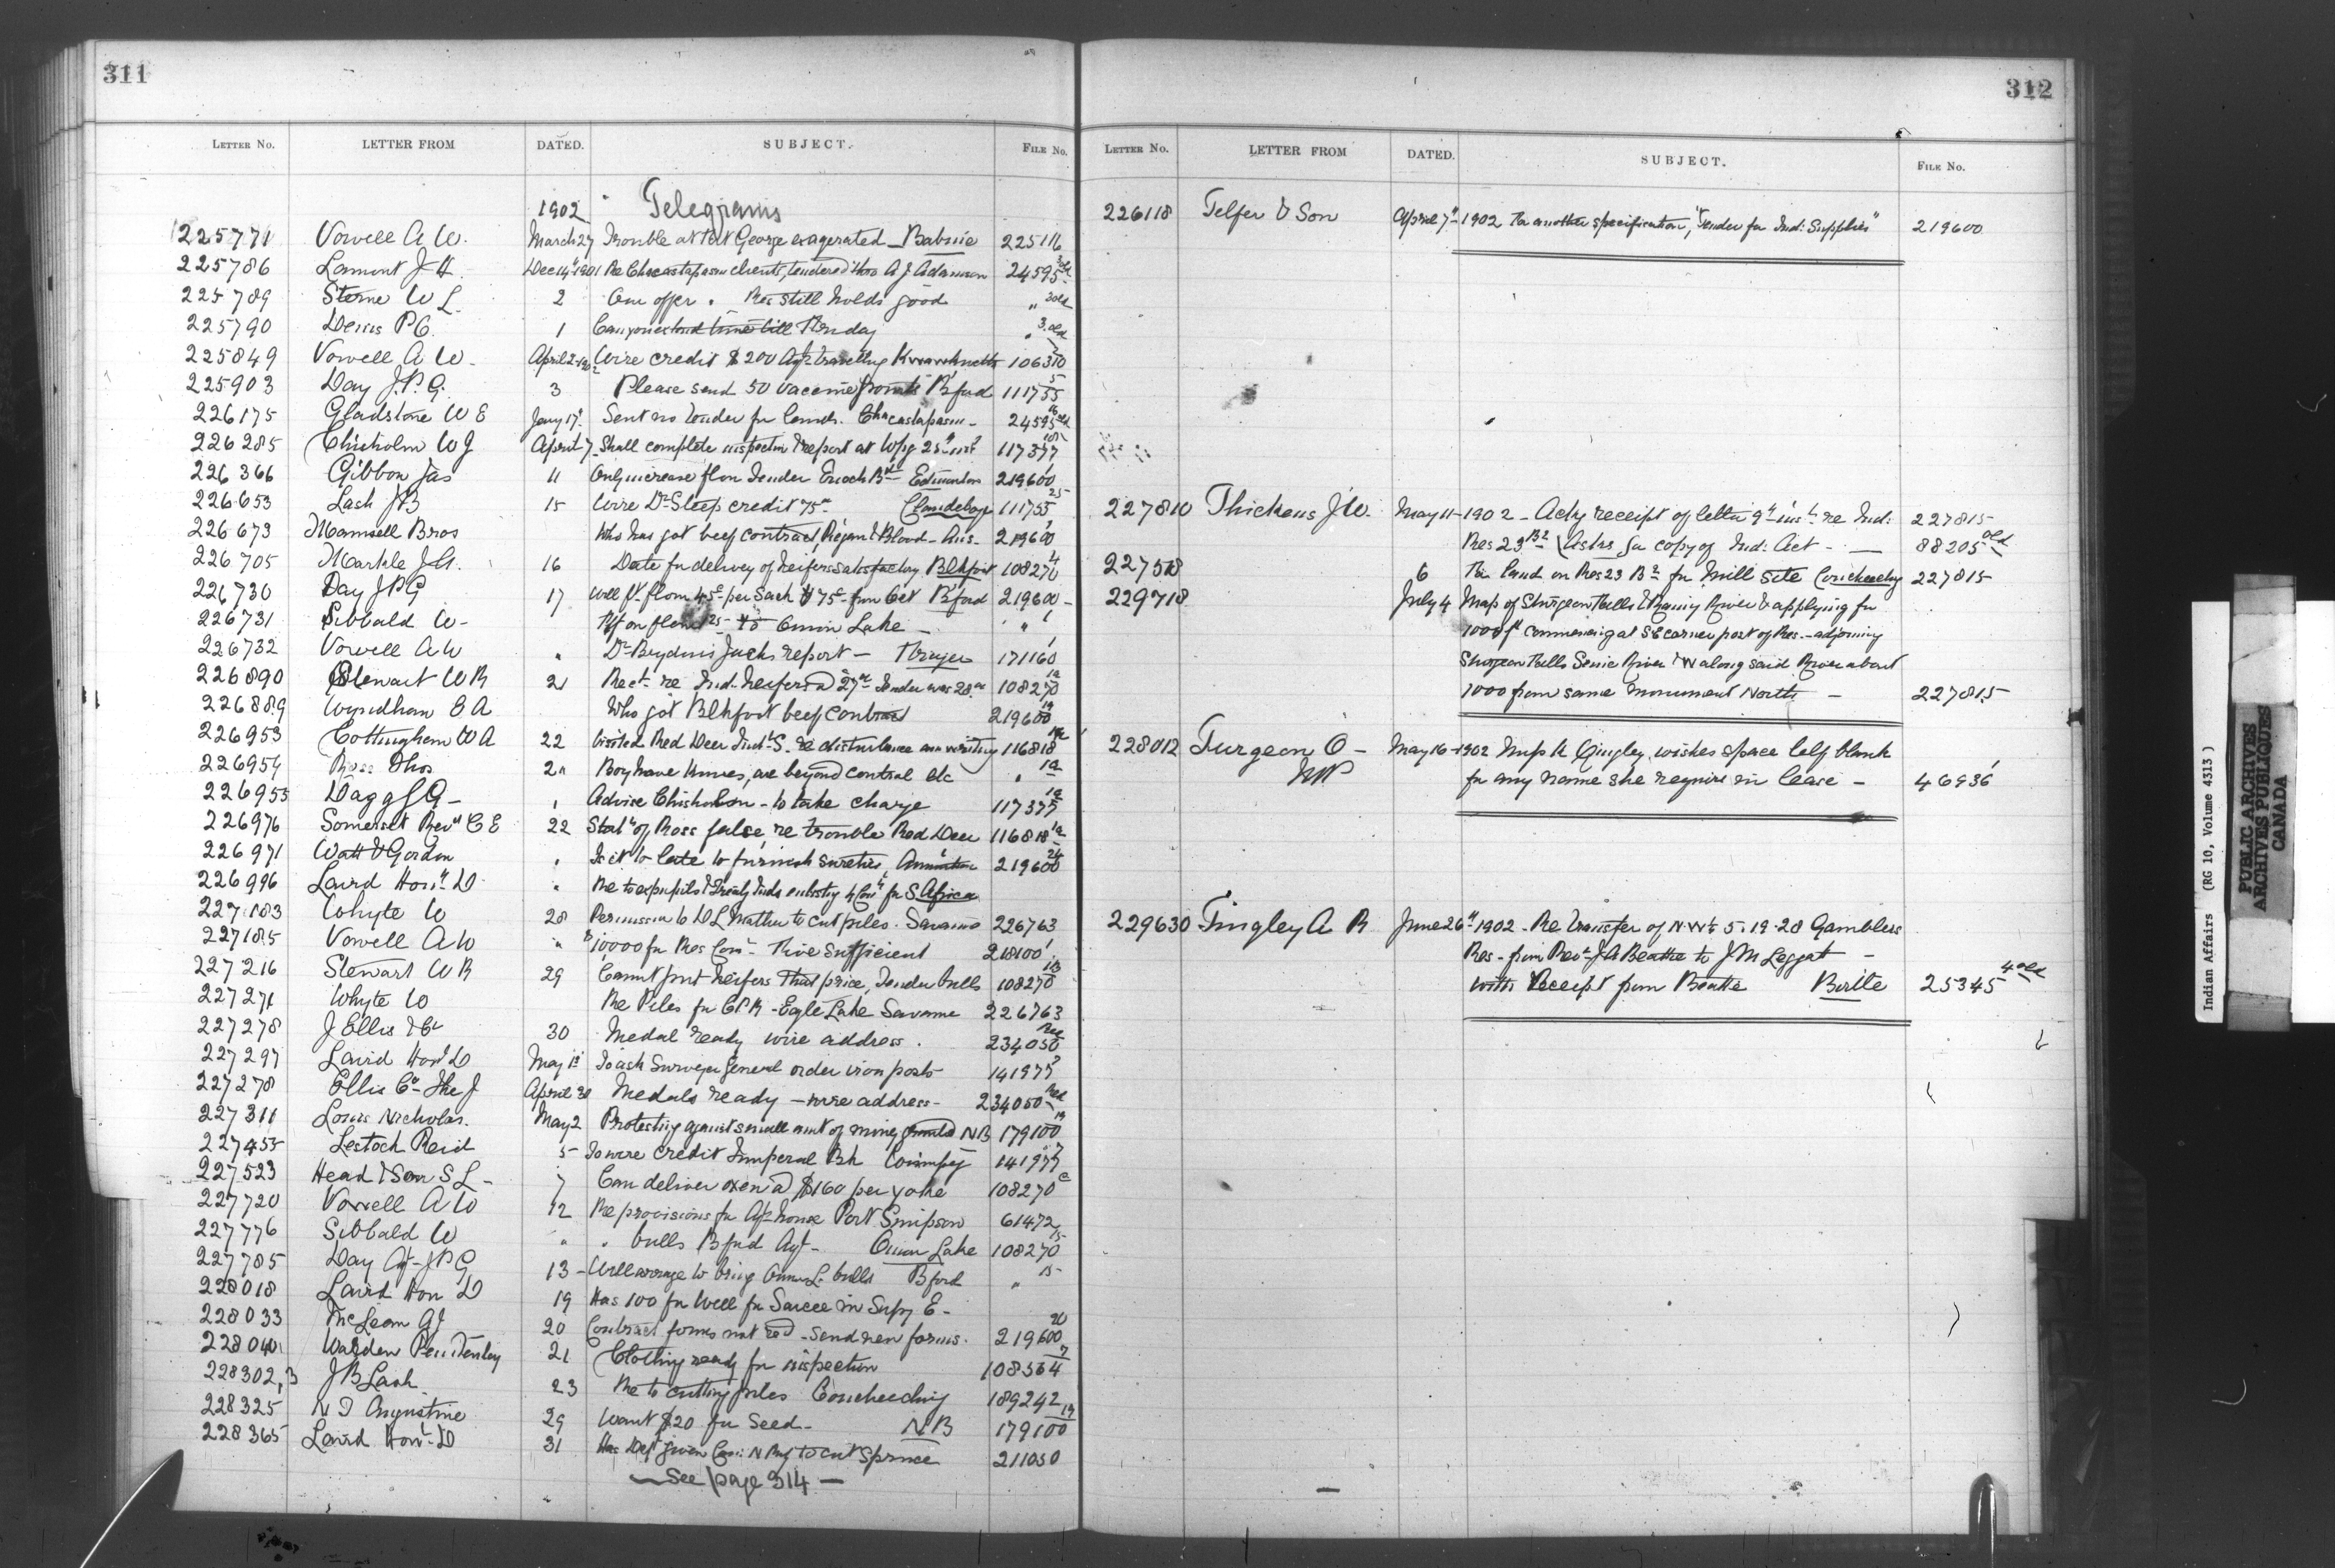 311
LETTER No. LETTER FROM DATED. SUBJECT. FILE No.
1902 Telegrams
225771 Vowell A W. March 27 Trouble at Fort George exagerated - Babine 225116
225786 Lamont J H. Dec 14" 1901 Re Chacastapasin clients, tendered thro A J Adamson 24595 3 old
225789 Sterne W L. 2 Our offer . Res still holds good " 3 old
225790 P C. 1 Can you extend time till Monday " 3. old
225849 Vowell A W. April 2 - 1902 Wire credit $200 Agt travelling 106310
225903 Day J. P. G. 3 Please send 50 vaccine points B'ford 111755 5
226175 Gladstone W E Jany 17" Sent no tender for lands. Chacastapasin - 24595 old
226285 Chisholm W J April 7 - Shall complete inspection & report at Wpg 25" inst 117377
226366 Gibbon Jas 11 Only increase flour tender Enoch Bd Edmonton 219600
226653 Lash J B 15 Wire Dr Steep credit 75 Clandeboye 111755 25
226673 Mamsell Bros Who has got beef contract, Piegan & Blood - Ans - 219600
226705 Markle J H. 16 Date for delivery of heifers satisfactory Blkfoot 108270 4
226730 Day J P G 17 Will ft. flour 45c per sack & 75c from Oct B'ford 219600 -
226731 Sibbald W - Onion Lake - "
226732 Vowell A W " Dr report - Fraser 171160 1
226890 Stewart W R 21 Rect. re Ind. heifers @ 27 tender was 28. 108270
226889 Wyndham E A Who got Blkfoot beef contract 219600
226953 Cottingham W A 22 Visited Red Deer Indl. S. re disturbance am writing 116818
226954 Ross Thos 21 Boy have knives, are beyond control etc "
226955 Dagg S G - , Advise Chisholm - to take charge 117377
226976 Somerset Revd C E 22 Statt of Ross false, re trouble Red Deer 116818
226971 Watt & Gordon , Is it to late to furnish sureties, 219600
226996 Laird Hon. D " Re to expupils & Treaty Inds enlisting for S Africa
227183 Whyte W 28 Permission to D L Mather to cut piles. Savanne 226763
227185 Vowell A W " $10,000 for Res Com - Five sufficient 218100
227216 Stewart W R 29 Cannot put heifers that price, Tender bulls 108270
227271 Whyte W Re Piles for C P R - Egle Lake Savanne 226763
227278 J Ellis & Co 30 Medal ready wire address. 234050 Red
227297 Laird Hon D May 1st To ask Surveyor General order iron posts 141977
227278 Ellis Co The J April 30 Medals ready - wire address - 234050 Red
227311 Louis Nicholas. May 2 Protesting against small amt of money granted N B 179100
227455 Lestock Reid 5 - To wire credit Imperial Bk Winnipeg 141977
227523 Head & Son S L - 7 Can deliver oxen @ $160 per yoke 108270
227720 Vowell A W 12 Re provisions for Agt house Port Simpson 61472
227776 Sibbald W " " bulls B'ford Agt - Onion Lake 108270 15
227785 Day Agt - J P G 13 - Will arrange to bring Onion L. bulls B'ford " 15
228018 Laird Hon D 19 Has 100 for Well for Sarcee in Supy E -
228033 McLean A J 20 Contract forms not recd - send new forms. 219600
228040 Warden Penitentiary 21 Clothing ready for inspection 108564 7
228302,3 J B Lash 23 Re to cutting piles Coucheeching 189242
228325 N D Augustine 29 Want $20 for seed - N B 179100
228365 Laird Hon - D 31 Has Dept given to cut spruce 211050
See page 314 -
312
LETTER No. LETTER FROM DATED. SUBJECT. FILE No.
226118 Telfer & Son April 7" - 1902 For another specification, "Tender for Ind: Supplies" 219600
227810 Thickens J W. May 11 - 1902 - Ackg receipt of letter 9" inst. re Ind: 227815
Res 23 B2 & asks for copy of Ind: Act - 88205 old
227518 6 For land on Res 23 B2 for mill site Coucheeching 227815
229718 July 4 Map of Sturgeon Falls & Rainy River & applying for
1000 ft commencing at S E corner post of Res. - adjoining
Sturgeon Falls Seine River & N W along said River about
1000 from same monument North - 227815
228012 Turgeon O - May 16 - 1902 Gingley, wishes space left blank
M P for any name she require in lease - 46936
229630 Tingley A R June 26" 1902 - Re transfer of N W ¼ 5. 19 - 28 Gamblers
Res - from Revd J A Beattie to J M Leggat -
with Receipt from Beattie Birtle 25345 4 old
Indian Affairs (RG 10, Volume 4313)
PUBLIC ARCHIVES
ARCHIVES PUBLIQUES
CANADA